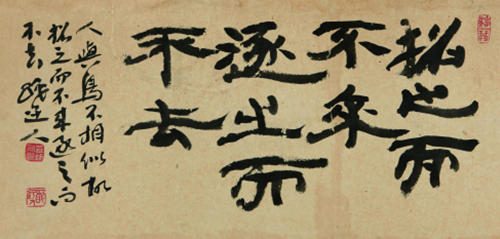 招之而
不來
逐之而
不去
人與鳥不相似
招之而不來逐之而
不去